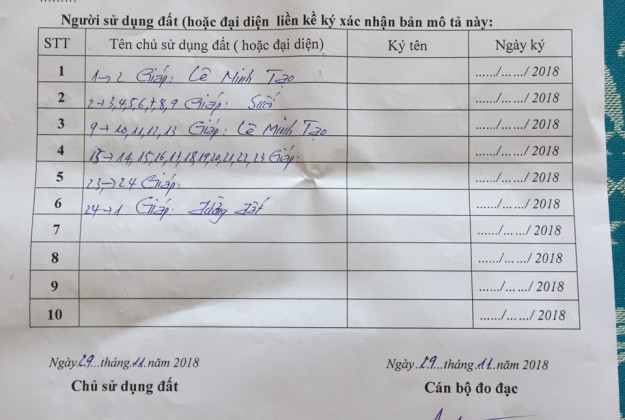 Người sử dụng đất (hoặc đại diện liền kề ký xác nhận bản mô tả này:
STT Tên chủ sử dụng đất ( hoặc đại diện) Ký tên Ngày ký
1 1→2 Giáp: Lê Minh Tạo ....../... .../ 2018
2 2→3,4,5,6,7,8,9 Giáp: Suối ....../... .../ 2018
3 9→10,11,12,13 Giáp: Lê Minh Tạo ....../... .../ 2018
4 13→14,15,16,17,18,19,20,21,22,23 Giáp: ....../... .../ 2018
5 23→24 Giáp: ....../... .../ 2018
6 24→1 Giáp: Đường đất ....../... .../ 2018
7 ....../... .../ 2018
8 ....../... .../ 2018
9 ....../... .../ 2018
10 ....../... .../ 2018
Ngày.29...tháng.11.năm 2018 Ngày.29...tháng.11.năm 2018
Chủ sử dụng đất Cán bộ đo đạc